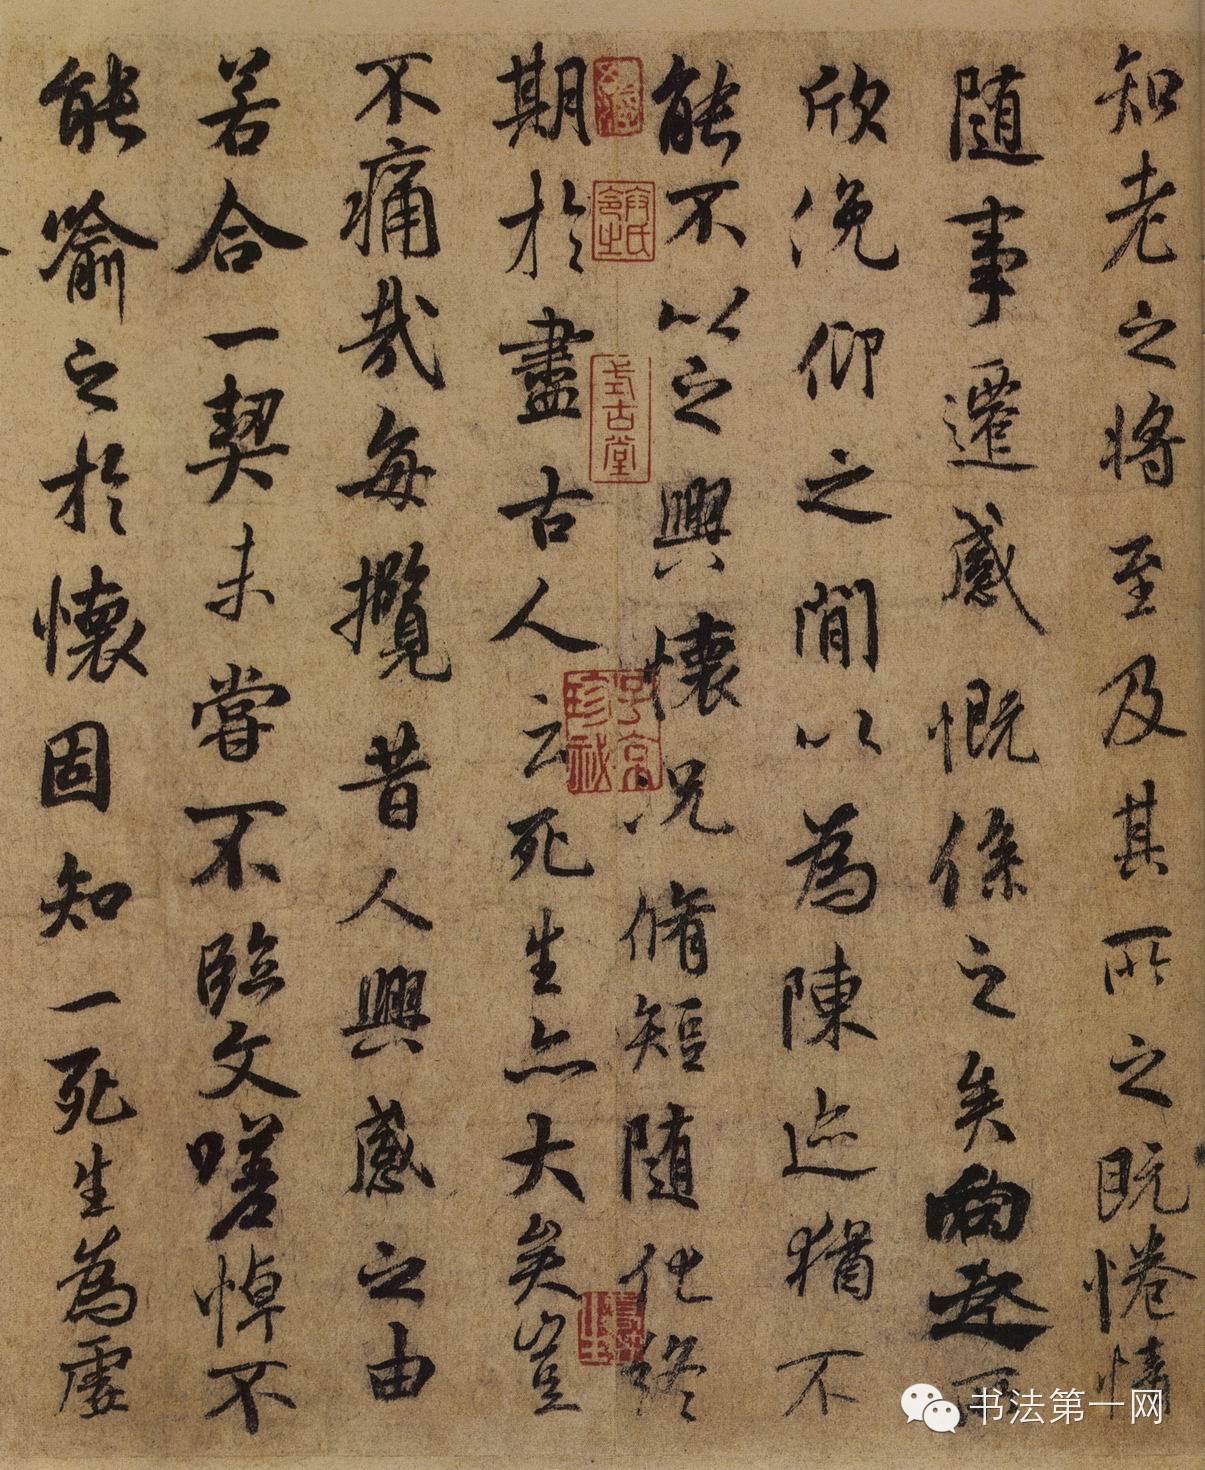 知老之将至及其所之既惓情
随事遷感慨係之矣向之所
欣俛仰之閒以為陳迹猶不
能不以之興懷況脩短随化終
期於盡古人云死生亦大矣豈
不痛哉每攬昔人興感之由
若合一契未嘗不臨文嗟悼不
能喻之於懷固知一死生為虛
式古堂
子京珍秘
书法第一网